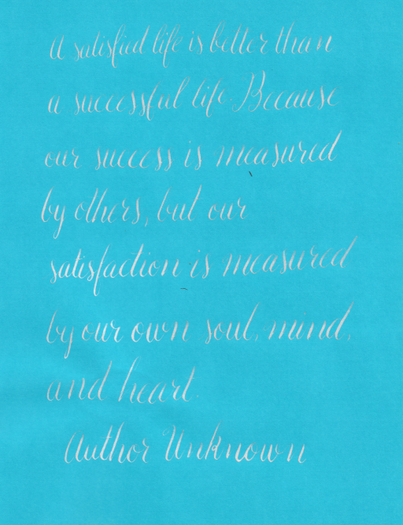 A satisfied life is better than
a successful life. Because
our success is measured
by others, but our
satisfaction is measured
by our own soul, mind,
and heart.
Author Unknown